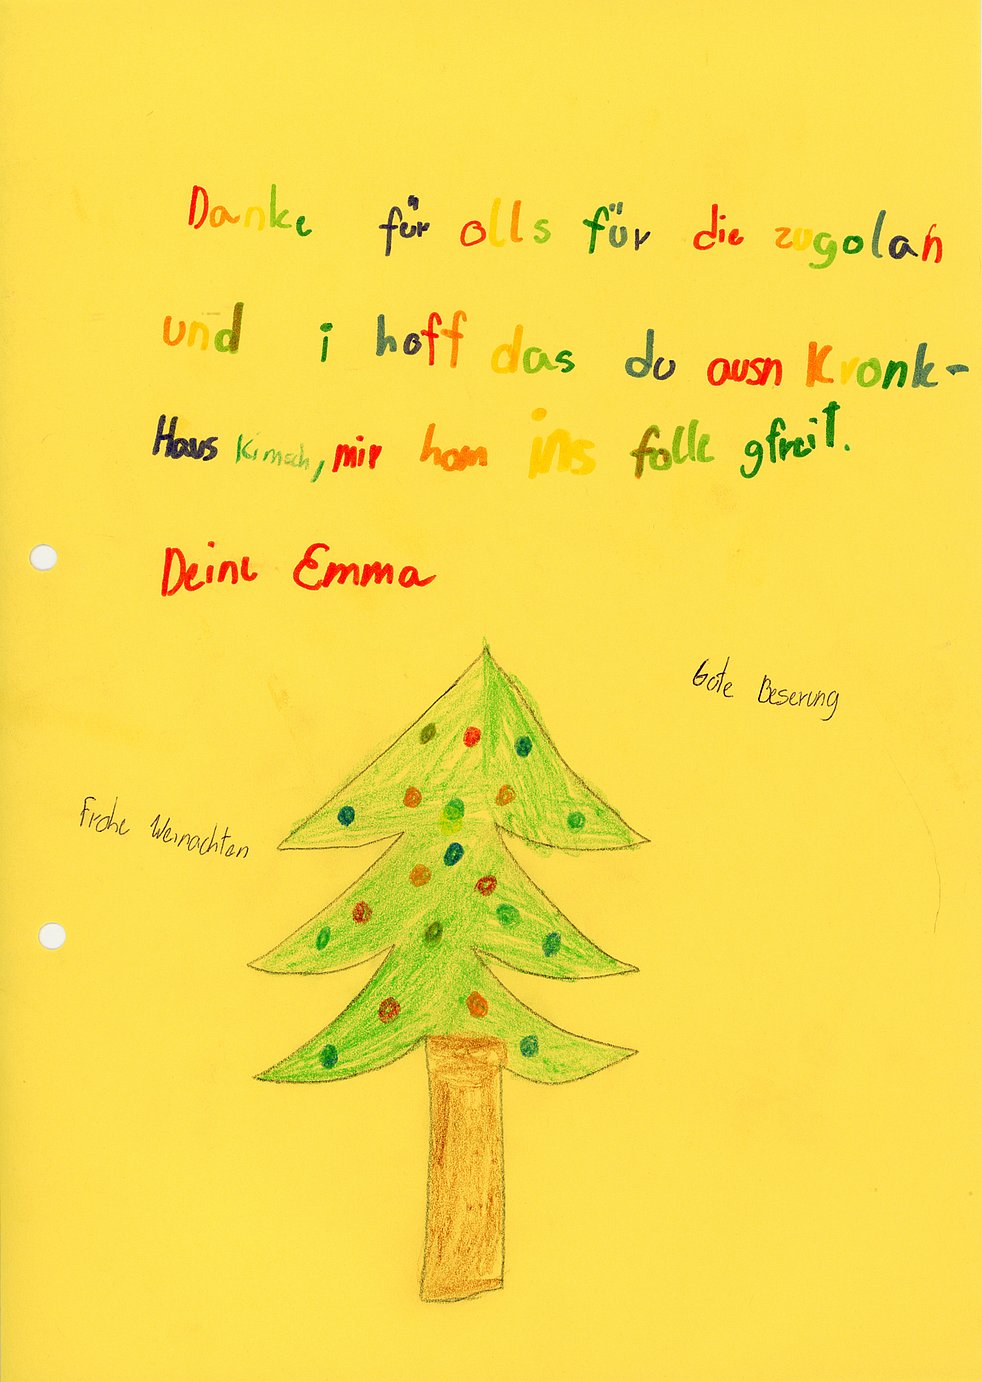 Danke für olls für die zugolan
und i hoff das du ausn Kronk-
Haus Kimsch, mir hom ins folle gfreit.
Deine Emma
Gute Beserung
Frohe Weinachten